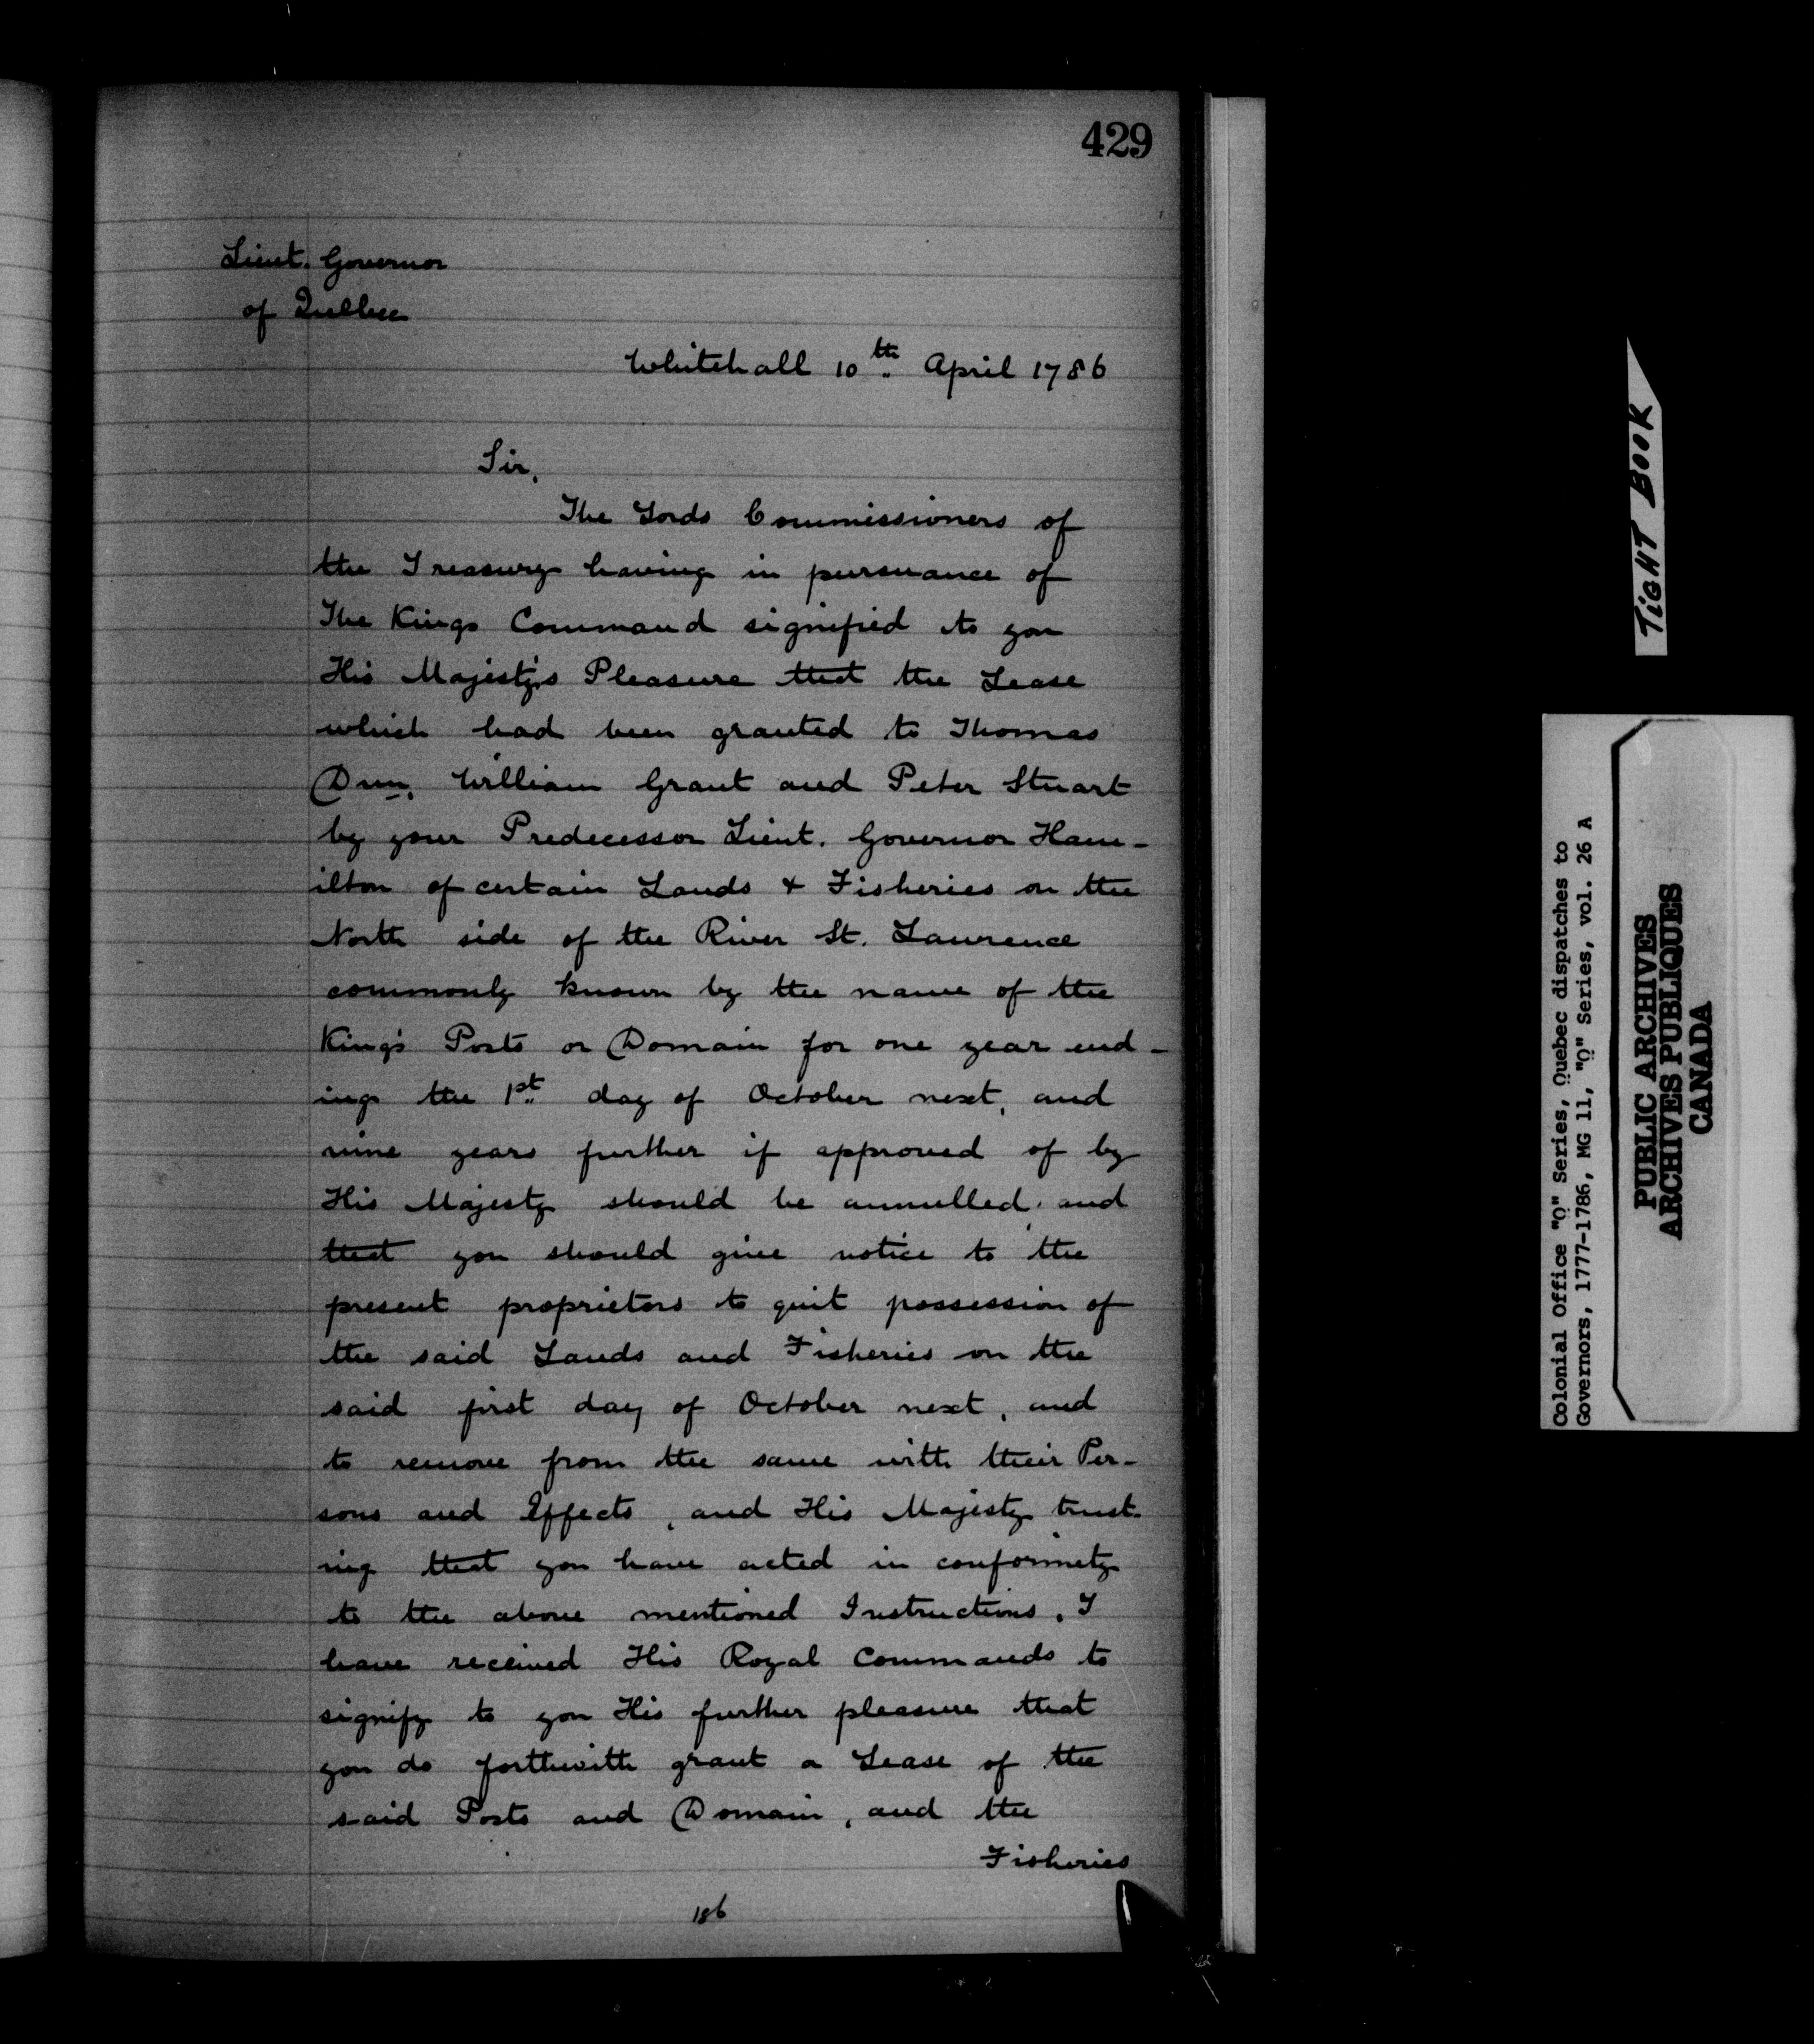 429
Lieut. Governor
of Quebec
Whitehall 10th. April 1786
Sir,
The Lords Commissioners of
the Treasury having in pursuance of
The Kings Command signified to you
His Majesty's Pleasure that the Lease
which had been granted to Thomas
Dun, William Grant and Peter Stuart
by your Predecessor Lieut. Governor Ham-
ilton of certain Lands & Fisheries on the
North side of the River St. Lawrence
commonly known by the name of the
King's Posts or Domain for one year end-
ing the 1st. day of October next, and
nine years further if approved of by
His Majesty should be annulled, and
that you should give notice to the
present proprietors to quit possession of
the said Lands and Fisheries on the
said first day of October next, and
to remove from the same with their Per-
sons and Effects, and His Majesty trust-
ing that you have acted in conformity
to the above mentioned Instructions, I
have received His Royal Commands to
signify to you His further pleasure that
you do forthwith grant a Lease of the
said Posts and Domain, and the
Fisheries
186
TIGHT BOOK
Colonial Office "Q" Series, Quebec dispatches to
Governors, 1777-1786, MG 11, "Q" Series, vol. 26 A
PUBLIC ARCHIVES
ARCHIVES PUBLIQUES
CANADA